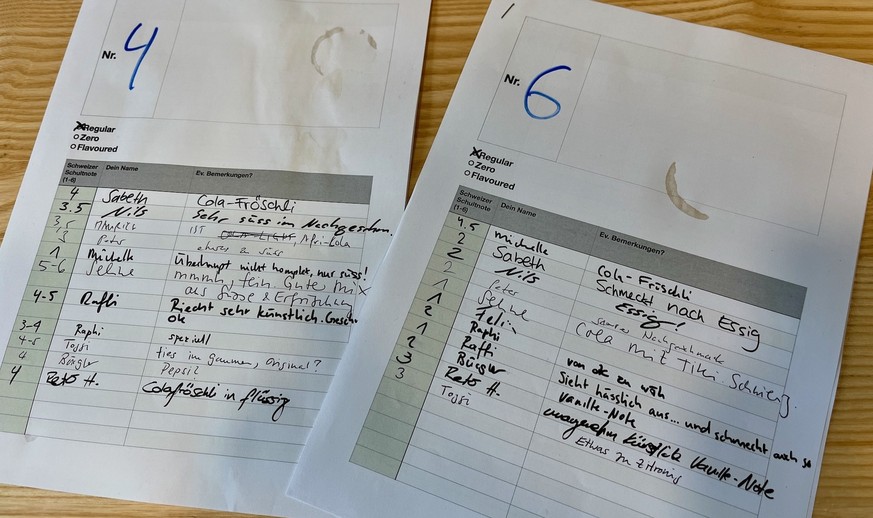 Nr. 4
Regular
Zero
Flavoured
Schweizer Schulnote (1-6) Dein Name Ev. Bemerkungen?
4 Sabeth Cola-Fröschli
3.5 Nils Sehr süss im Nachgeschm.
3,5 Mauritz IST Afri-Cola
3 Peter etwas zu süss
1 Michelle Überhaupt nicht komplex, nur süss!
5-6 Jenne mmmh, fein. Gute Mix
aus Süsse & Erfrischung
4-5 Raffi Riecht sehr künstlich. Geschm.
ok
3-4 Raphi speziell
4-5 Toggi tief im gaumen, original?
4 Bürgler Pepsi?
4 Reto H. Colafröschli in flüssig
Nr. 6
Regular
Zero
Flavoured
Schweizer Schulnote (1-6) Dein Name Ev. Bemerkungen?
4.5 Michelle Cola-Fröschli
2 Sabeth Schmeckt nach Essig
2 Nils Essig!
2 Peter saurer Nachgeschmack
1 Cola mit Tiki
1 Felix
2 Raphi von ok zu wäh
1 Raffi Sieht hässlich aus... und schmeckt auch so
2 Bürgler Vanille-Note
3 Reto H. unangenehm künstlich Vanille-Note
3 Toggi Etwas zu zitronig